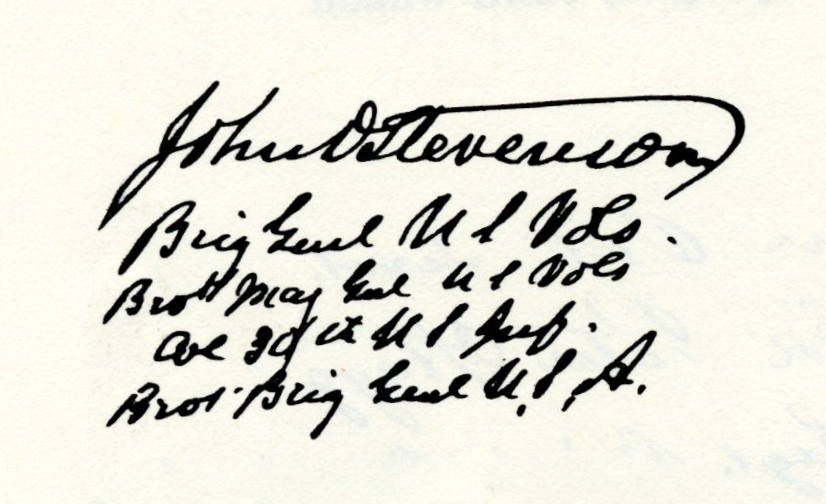 John D Stevenson
Brig Genl U S Vols.
Brvt Maj Genl U S Vols
Col 30th U S Inf.
Brvt. Brig Genl U.S.A.